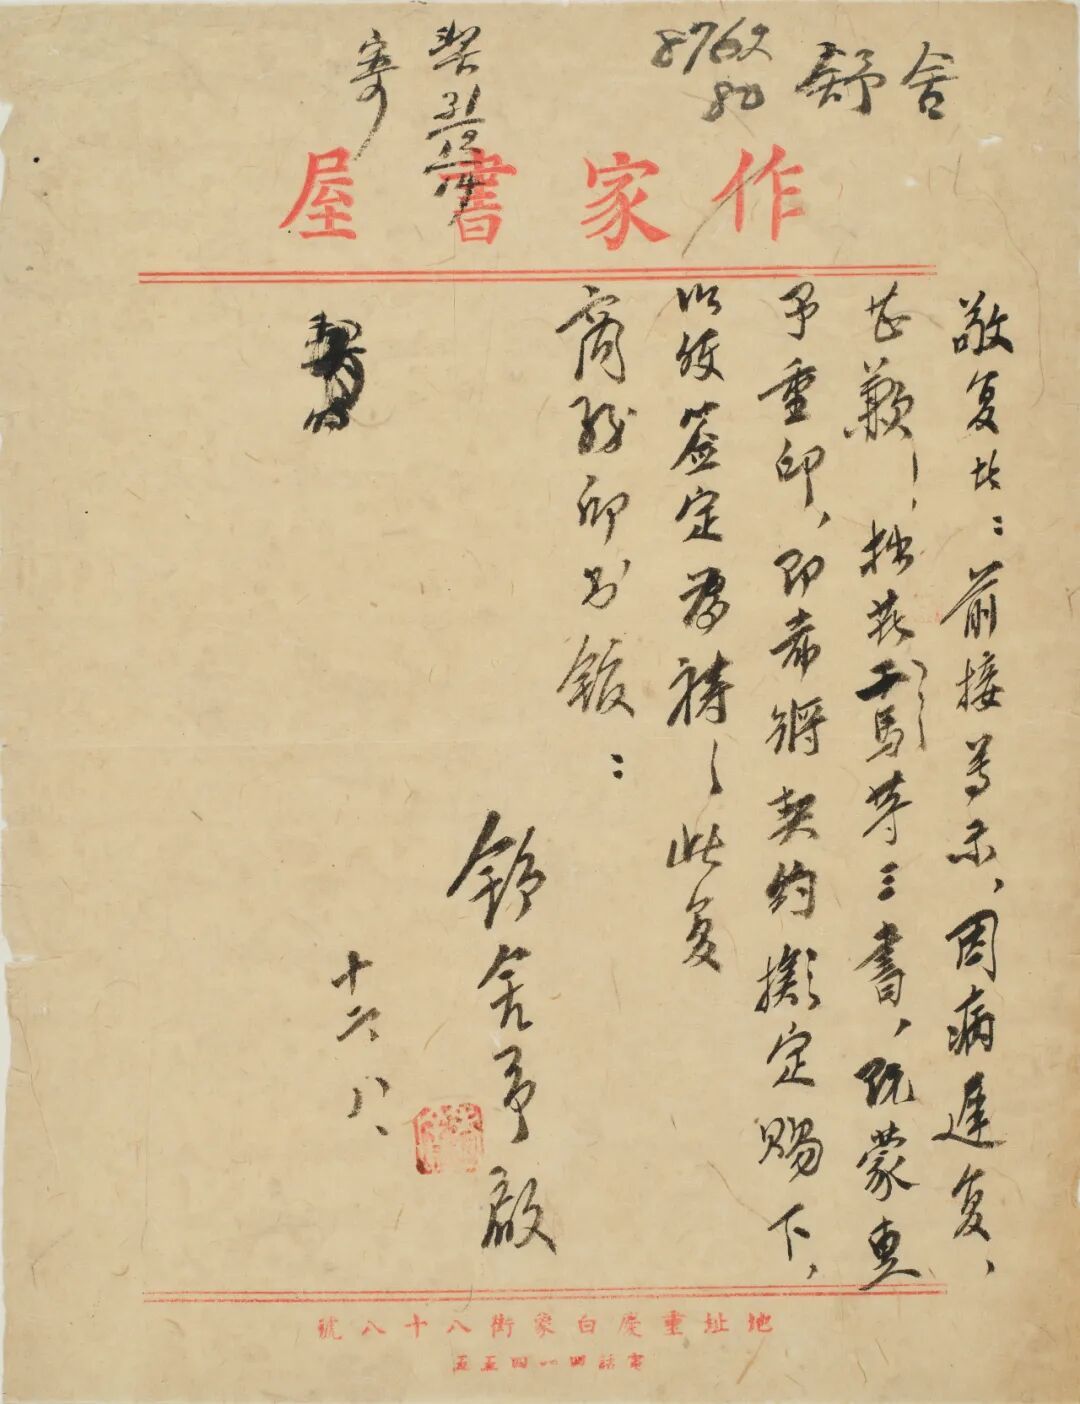 舍舒
8762
80
契
31/12/14
寄
作家書屋
敬复者：前接尊示，因病遲复，
甚歉，拙著二馬等三書，既蒙惠
予重印，即希將契約擬定賜下，
以便簽定為禱，此复
商務印书館：
舒舍予啟
十二、八、
地址重慶白象街八十八號
電話四一四五五